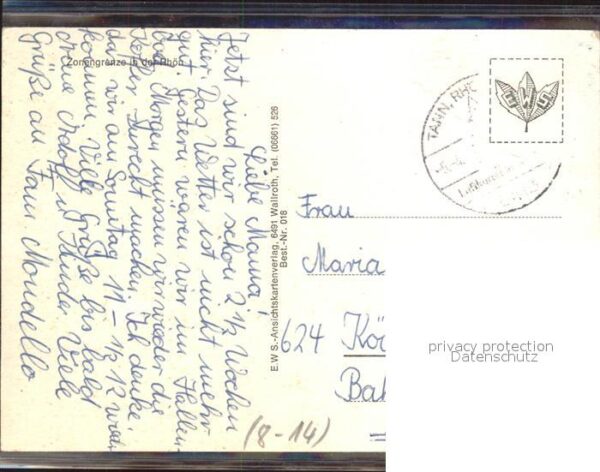 Zonengrenze in der Rhön
Liebe Mama!
Jetzt sind wir schon 2 ½ Wochen
hier. Das Wetter ist nicht mehr
gut. Gestern waren wir im Hallen-
bad. Morgen müssen wir wieder die
Koffer zurecht machen. Ich denke,
da wir am Sonntag 11 - ½ 12
kommen. Viele Grüße bis bald
Adolf u. Kinder. Viele
Grüße an Fam Mondello
E W S.-Ansichtskartenverlag, 6491 Wallroth, Tel. (06661) 526
Best.-Nr. 018
TANN, RHÖ
EWS
Frau
Maria
624 Kö
Bah
(8-14)
privacy protection
Datenschutz